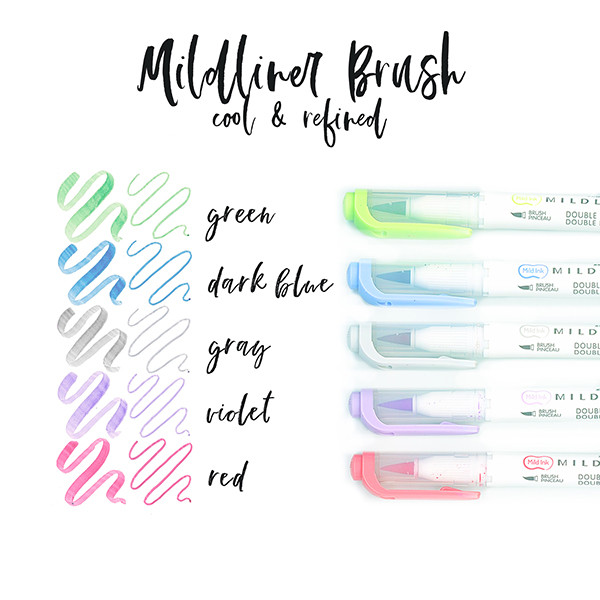 Mildliner Brush
cool & refined
green
dark blue
gray
violet
red
Mild Ink MILDL
BRUSH PINCEAU DOUBLE
DOUBLE
Mild Ink MILD
BRUSH PINCEAU DOUB
DOUBL
Mild Ink MILD
BRUSH PINCEAU DOUBL
DOUBL
Mild Ink MILD
BRUSH PINCEAU DOUBL
DOUBL
Mild Ink MILD
BRUSH PINCEAU DOUBL
DOUBL